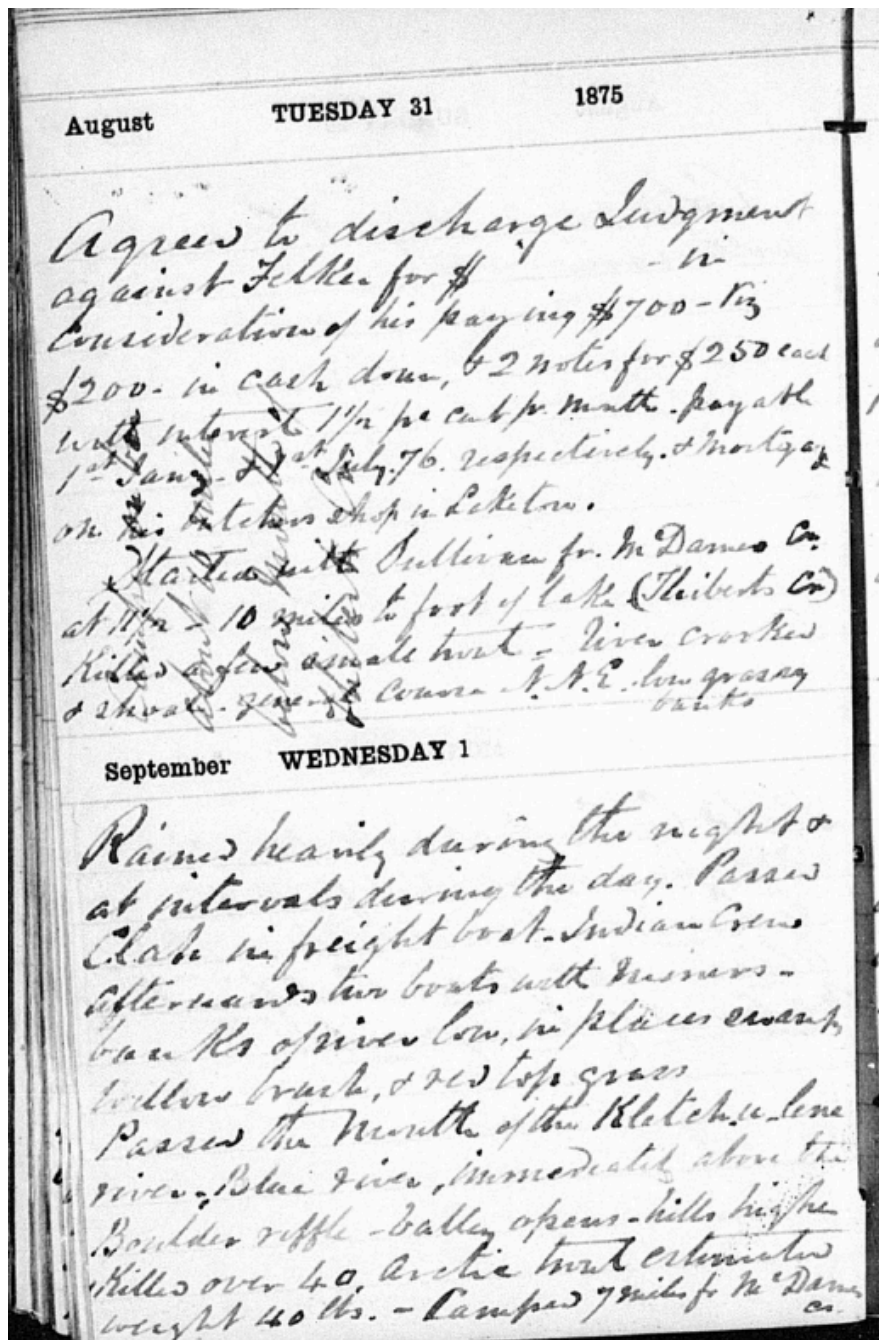 August TUESDAY 31 1875
Agreed to discharge Judgment
against Felker for $ - in
Consideration of his paying $700 - Viz
$200 - in cash down, & 2 notes for $250 each
with interest 1 1/2 pr cent pr. month - payable
1st Jany - & 1st July. 76. respectively. & Mortgage
on his butchers shop in Laketon.
Started with Sullivan fr. McDames Cr.
at 11 1/2 - 10 miles to foot of lake (Thiberts Cr)
Killed a few small trout - River crooked
& shoal - general course N.N.E. low grassy
banks
about
below
Thiberts Cr
September WEDNESDAY 1
Rained heavily during the night &
at intervals during the day. Passed
Clah in freight boat - Indian Crew
afterwards two boats with Miners -
banks of river low, in places swampy
willow brush, & red top grass
Passed the Mouth of the Kletch-u-lene
river - Blue river, immediately above the
Boulder riffle - Valley opens - hills higher
Killed over 40 Arctic trout estimated
weight 40 lbs. - Camped 7 miles fr McDames
Cr.